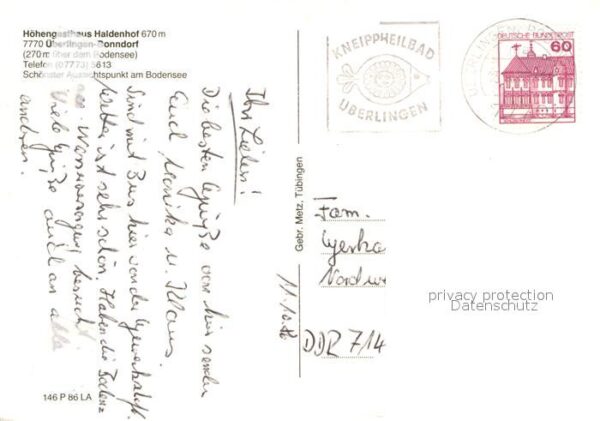 Höhengasthaus Haldenhof 670 m
7770 Überlingen-Bonndorf
(270 m über dem Bodensee)
Telefon (07773) 5613
Schönster Aussichtspunkt am Bodensee
KNEIPPHEILBAD
ÜBERLINGEN
ÜBERLINGEN
DEUTSCHE BUNDESPOST
60
Ihr Lieben!
Die besten Grüße von hier senden
Euch Monika u. Klaus.
Sind mit Bus hier von der Gewerkschaft.
Wetter ist sehr schön. Haben die Bodensee
Wasserversorgung besucht
Viele Grüße auch an alle
anderen.
11.10.86
Gebr. Metz, Tübingen
Fam.
Nordw
DDR 714
privacy protection
Datenschutz
146 P 86 LA